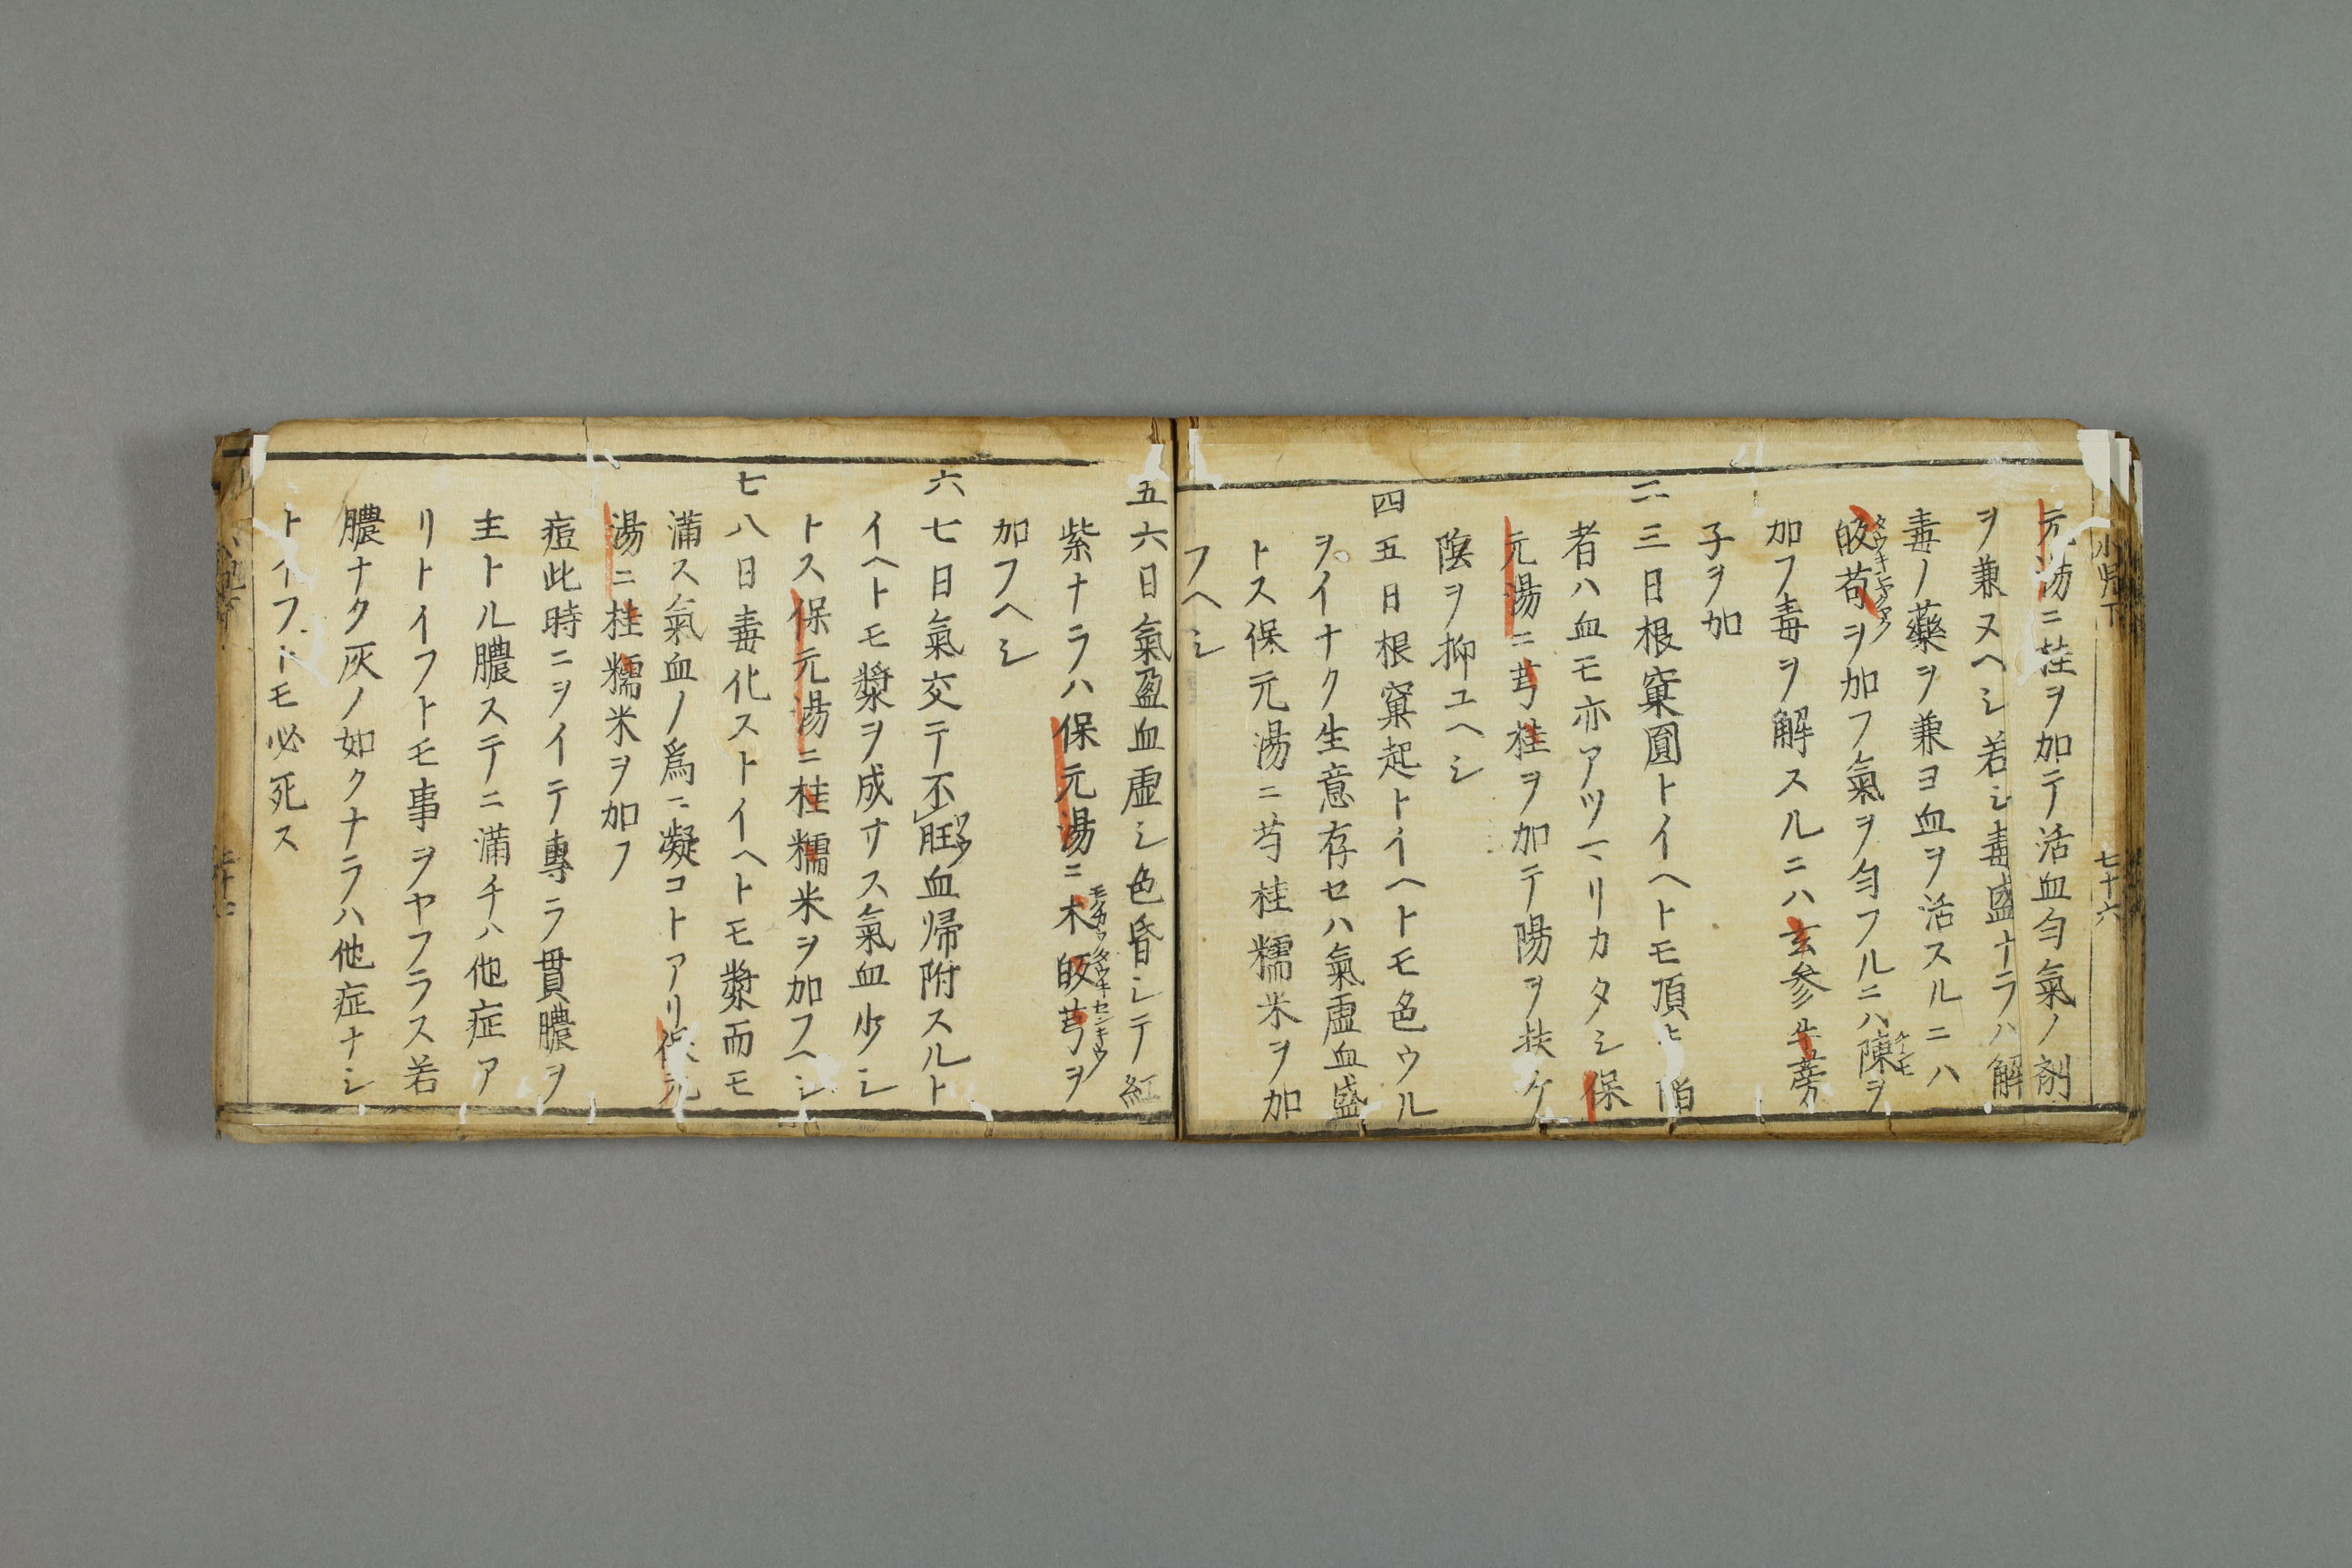 小児下
七十六
元湯ニ桂ヲ加テ活血匀氣ノ剤
ヲ兼ヌヘシ若シ毒盛ナラハ解
毒ノ藥ヲ兼ヨ血ヲ活スルニハ
皈芍ヲ加フ氣ヲ匀フルニハ陳ヲ
タウキシヤクヤク
加フ毒ヲ解スルニハ玄参牛蒡
子ヲ加
二三日根窠圓トイヘトモ頂陷
者ハ血モ亦アツマリカタシ保
元湯ニ芎桂ヲ加テ陽ヲ扶ケ
陰ヲ抑ユヘシ
四五日根窠起トイヘトモ色ウル
ヲイナク生意存セハ氣虚血盛
トス保元湯ニ芍桂糯米ヲ加
フヘシ
五六日氣盈血虚シ色昏シテ紅
紫ナラハ保元湯ニ木皈芎ヲ
モツカウタウキセンキウ
加フヘシ
六七日氣交テ不旺血帰附スルト
ワウ
イヘトモ漿ヲ成サス氣血少シ
トス保元湯ニ桂糯米ヲ加フヘシ
七八日毒化ストイヘトモ漿而モ
滿ス氣血ノ爲ニ凝コトアリ保元
湯ニ桂糯米ヲ加フ
痘此時ニヲイテ專ラ貫膿ヲ
主トル膿ステニ滿チハ他症ア
リトイフトモ事ヲヤフラス若
膿ナク灰ノ如クナラハ他症ナシ
トイフトモ必死ス